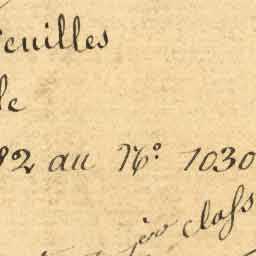 euilles
le
92 au N° 1030
class